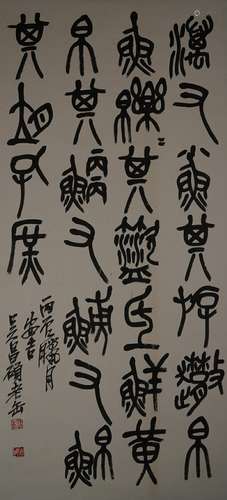 澫又小魚其斿散帛
魚皪=其盜氐鮮黃
帛其鯾又鰟又鮊
其孔庶
丙辰臘月
安吉
吳昌碩老缶